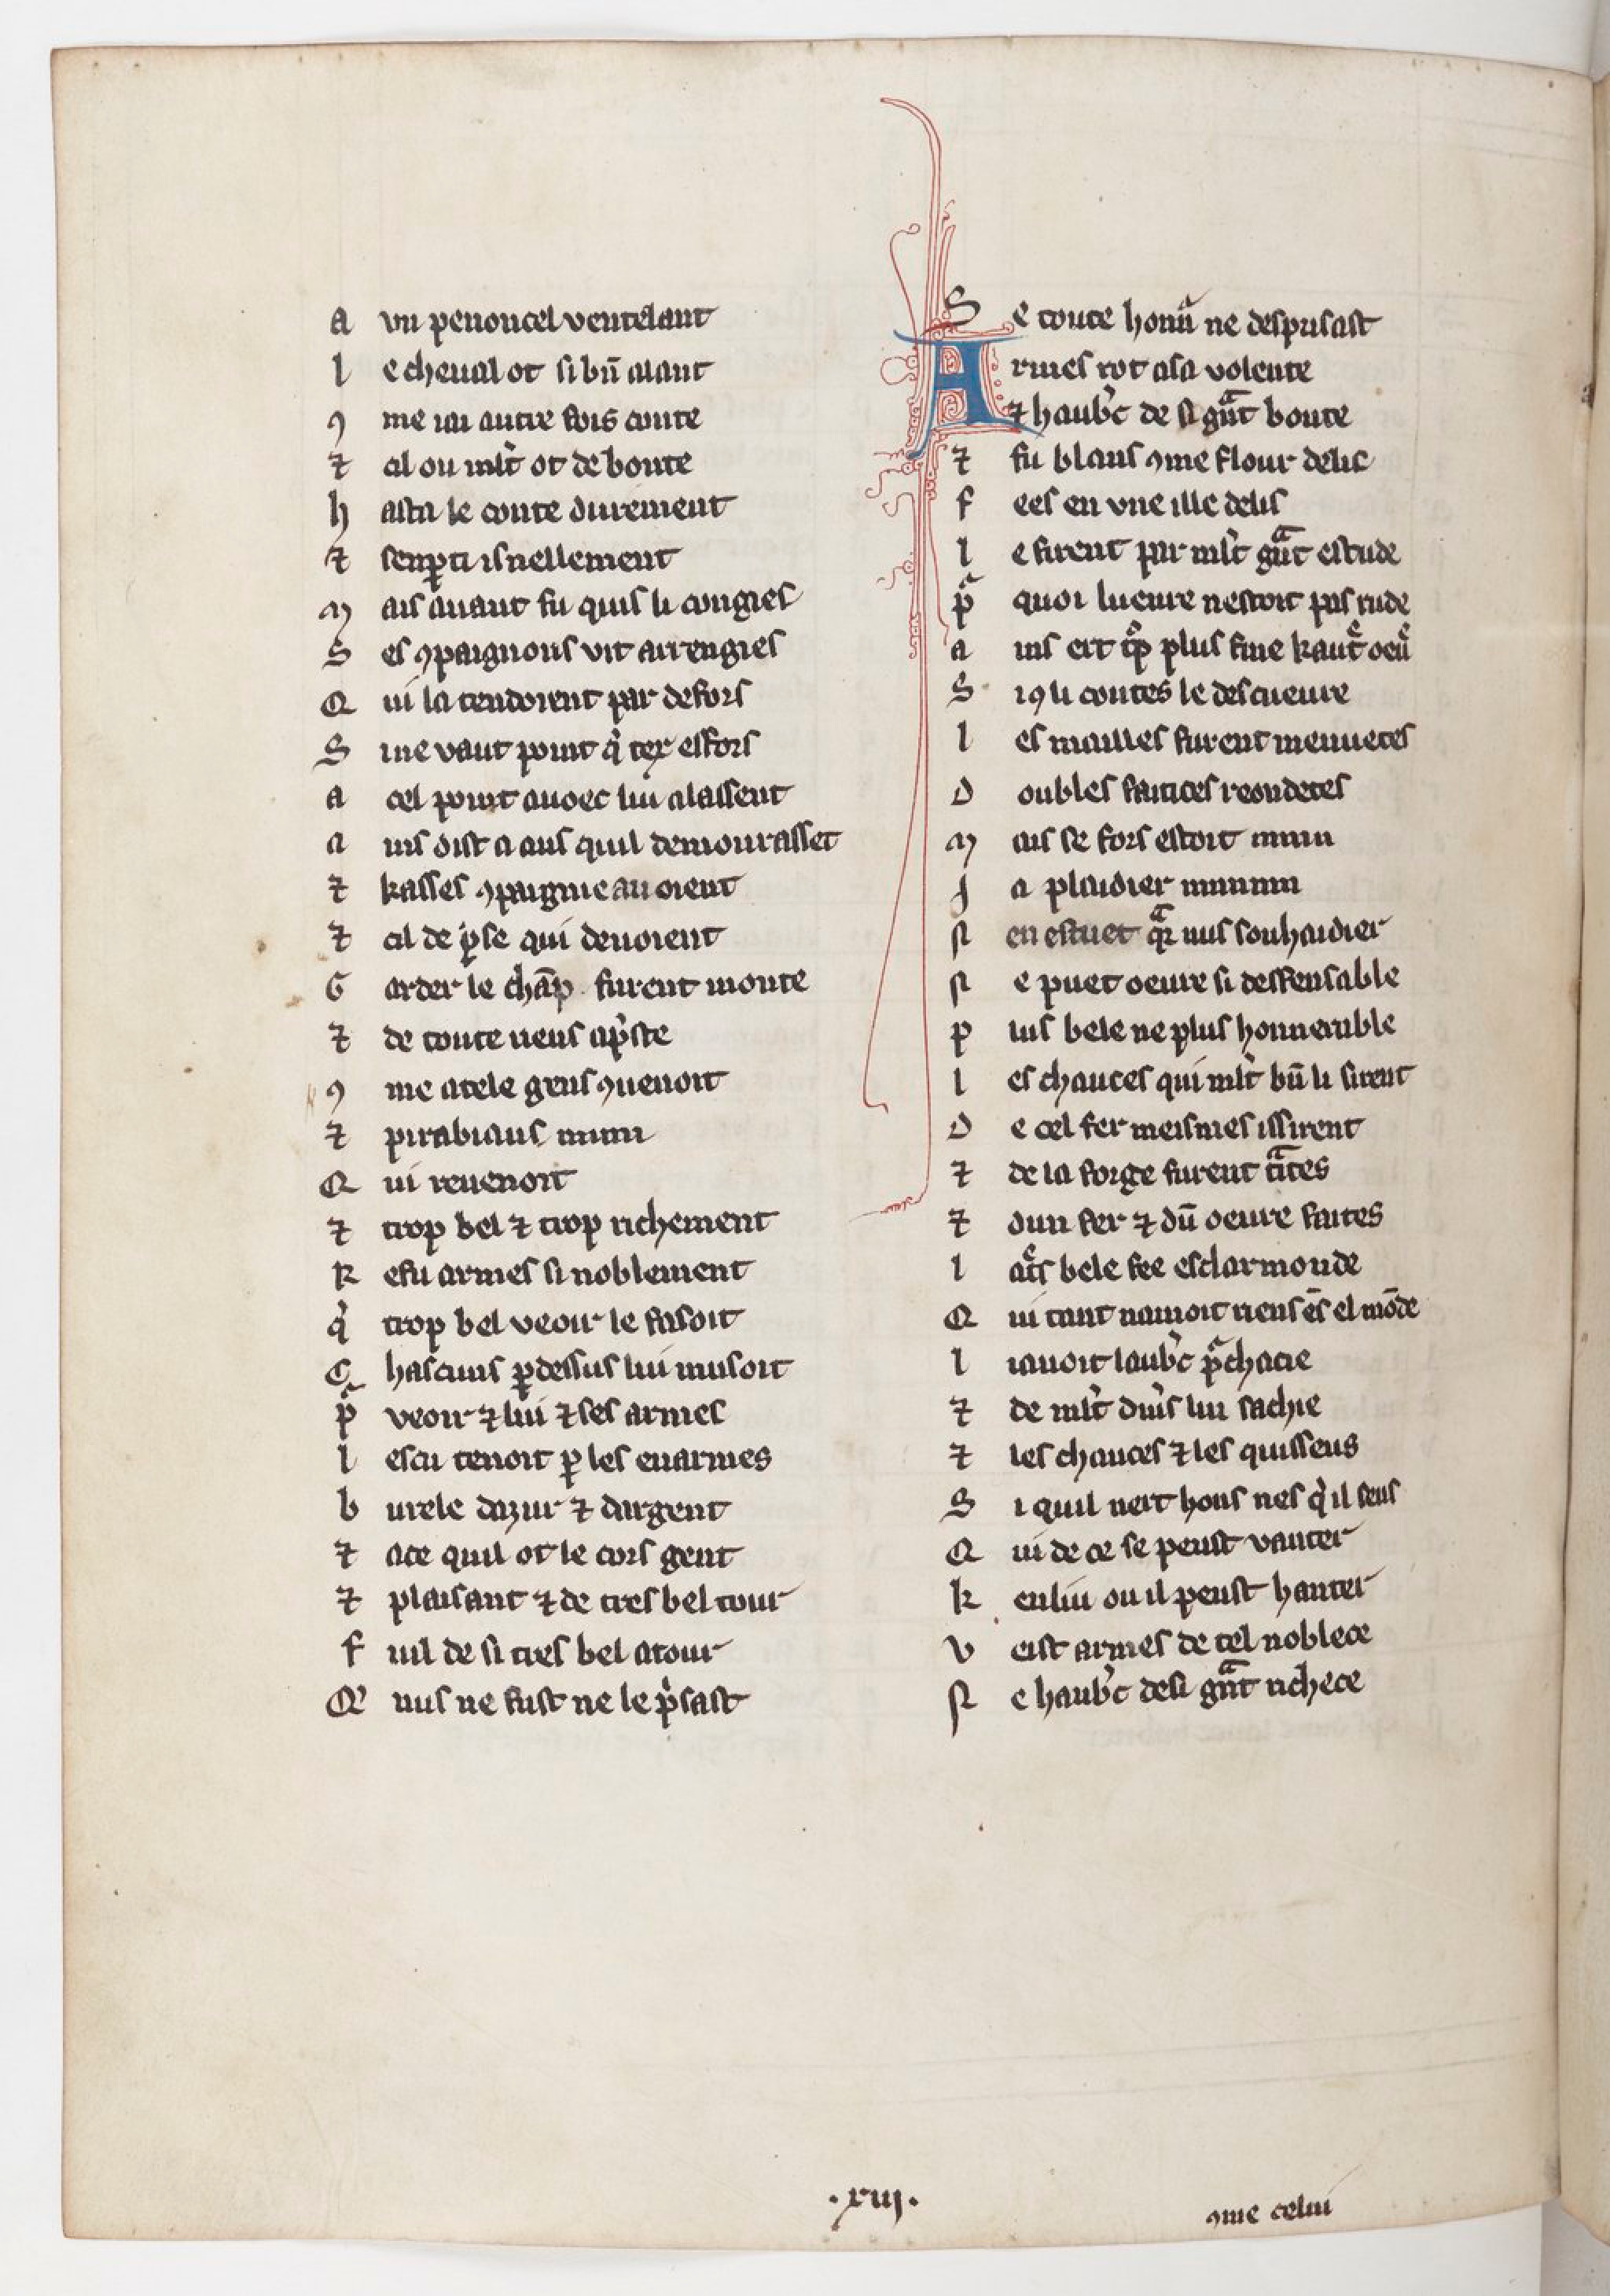 A vn penoncel ventelant
l e cheual ot si bn̄ alant
ꝯ me iai autre fois conte
⁊ al ou ml̄t ot de bonte
h asta le conte durement
⁊ senꝑti isnellement
m ais auant fu quis li congies
S es ꝯpaignons vit arrengies
Q ui la tendoient par defors
S ine vaut point q̇ teꝝ esfors
a cel point auoec lui alassent
a ins dist a aus quil demourasset
⁊ kasses ꝯpaignie auoient
⁊ cil de pͥse qui deuoient
G arder le chāp furent monte
⁊ de toute riens apͥste
ꝯ me a tele gens ꝯuenoit
⁊ pirabiaus
Q ui reuenoit
⁊ trop bel ⁊ trop richement
R efu armes si noblement
qͥ trop bel veoir le faisoit
C hascuns ꝑdessus lui musoit
pᵃ veoir ⁊ lui ⁊ ses armes
l escu tenoit ꝑ les enarmes
b urele dazur ⁊ dargent
⁊ ace quil ot le cors gent
⁊ plaisant ⁊ de tres bel tour
f uil de si tres bel atour
Q' nus ne fust ne le pͥsast
S e toute honᵃ ne desprisast
A rmes rot asa volente
⁊ haub'c de si gᵃnt bonte
⁊ fu blans ꝯme flour delis
f ees en vne ille delis
l e firent par ml̄t gᵃnt estude
pᵃ quoi lueure nestoit pas rude
a ins ert tͦp plus fine kaut' oeu'
S i ꝯ li contes le descueure
l es mailles furent menuetes
D oubles faitices reondetes
m ais se fors estoit
J a plaidier
N en estuet qᵃr nus souhaidier
N e puet oeure si deffensable
p lus bele ne plus honnerable
l es chauces qui ml̄t bn̄ li sirent
D e cel fer meismes issirent
⁊ de la forge furent tᵃites
⁊ dun fer ⁊ dū oeure faites
l at's bele fee esclarmonde
Q ui tant namoit riens ēs el mōde
l i auoit laub'c pᵃchacie
⁊ de ml̄t du's lui sachie
⁊ les chauces ⁊ les quissens
S i quil nert hons nes qͥ il sens
Q ui de ce se peust vanter
k en liu ou il peust hanter
v eist armes de tel noblece
N e haub'c desi gᵃnt richece
.xiij.
ꝯme celui